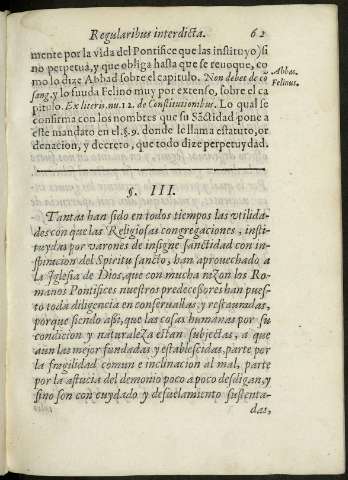 Regularibus interdicta. 62
mente por la vida del Pontifice que las instituyo) si
no perpetuà, y que obliga hasta que se reuoque, co
mo lo dize Abbad sobre el capitulo. Non debet de cō
sang. y lo funda Felino muy por extenso, sobre el ca
pitulo. Ex literis. nu. 12. de Constitutionibus. Lo qual se
confirma con los nombres que su Sāctidad pone a
este mandato en el §. 9. donde le llama estatuto, or
denacion, y decreto, que todo dize perpetuydad.
Abbas.
Felinus.
§. III.
Tantas han sido en todos tiempos las vtilida-
des con que las Religiosas congregaciones, insti-
tuydas por varones de insigne sanctidad con in-
spiracion del Spiritu sancto, han aprouechado a
la Iglesia de Dios, que con mucha razon los Ro-
manos Pontifices nuestros predecessores han pues-
to toda diligencia en conseruallas y restauradas,
porque siendo assi, que las cosas humanas por su
condicion y naturaleza estan subjectas, a que
aun las mejor fundadas y establescidas, parte por
la fragilidad comun e inclinacion al mal, parte
por la astucia del demonio poco a poco desdigan, y
sino son con cuydado y desuelamiento sustenta-
das,